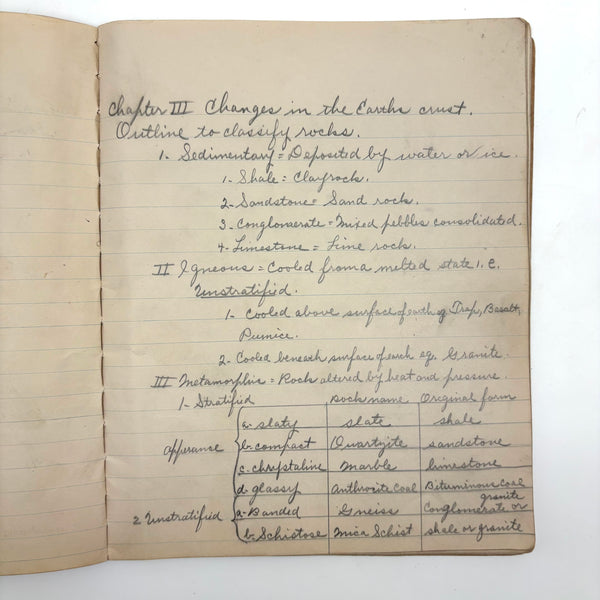 Chapter III Changes in the Earths crust.
Outline to classify rocks.
1- Sedimentary = Deposited by water or ice.
1- Shale = Clayrock.
2- Sandstone = Sand rock.
3- Conglomerate = Mixed pebbles consolidated.
4- Limestone = Lime rock.
II Igneous = Cooled from a melted state i.e.
Unstratified.
1- Cooled above surface of earth eg Trap, Basalt,
Pumice.
2- Cooled beneath surface of earth eg. Granite.
III Metamorphic = Rock altered by heat and pressure.
1- Stratified Rock name Original form
a- slaty slate shale
apperance b- compact Quartzite sandstone
c- chrystaline Marble limestone
d- glassy Anthrocite Coal Bituminous Coal
granite
2 Unstratified a- Banded Gneiss Conglomerate or
b- Schistose Mica Schist shale or granite